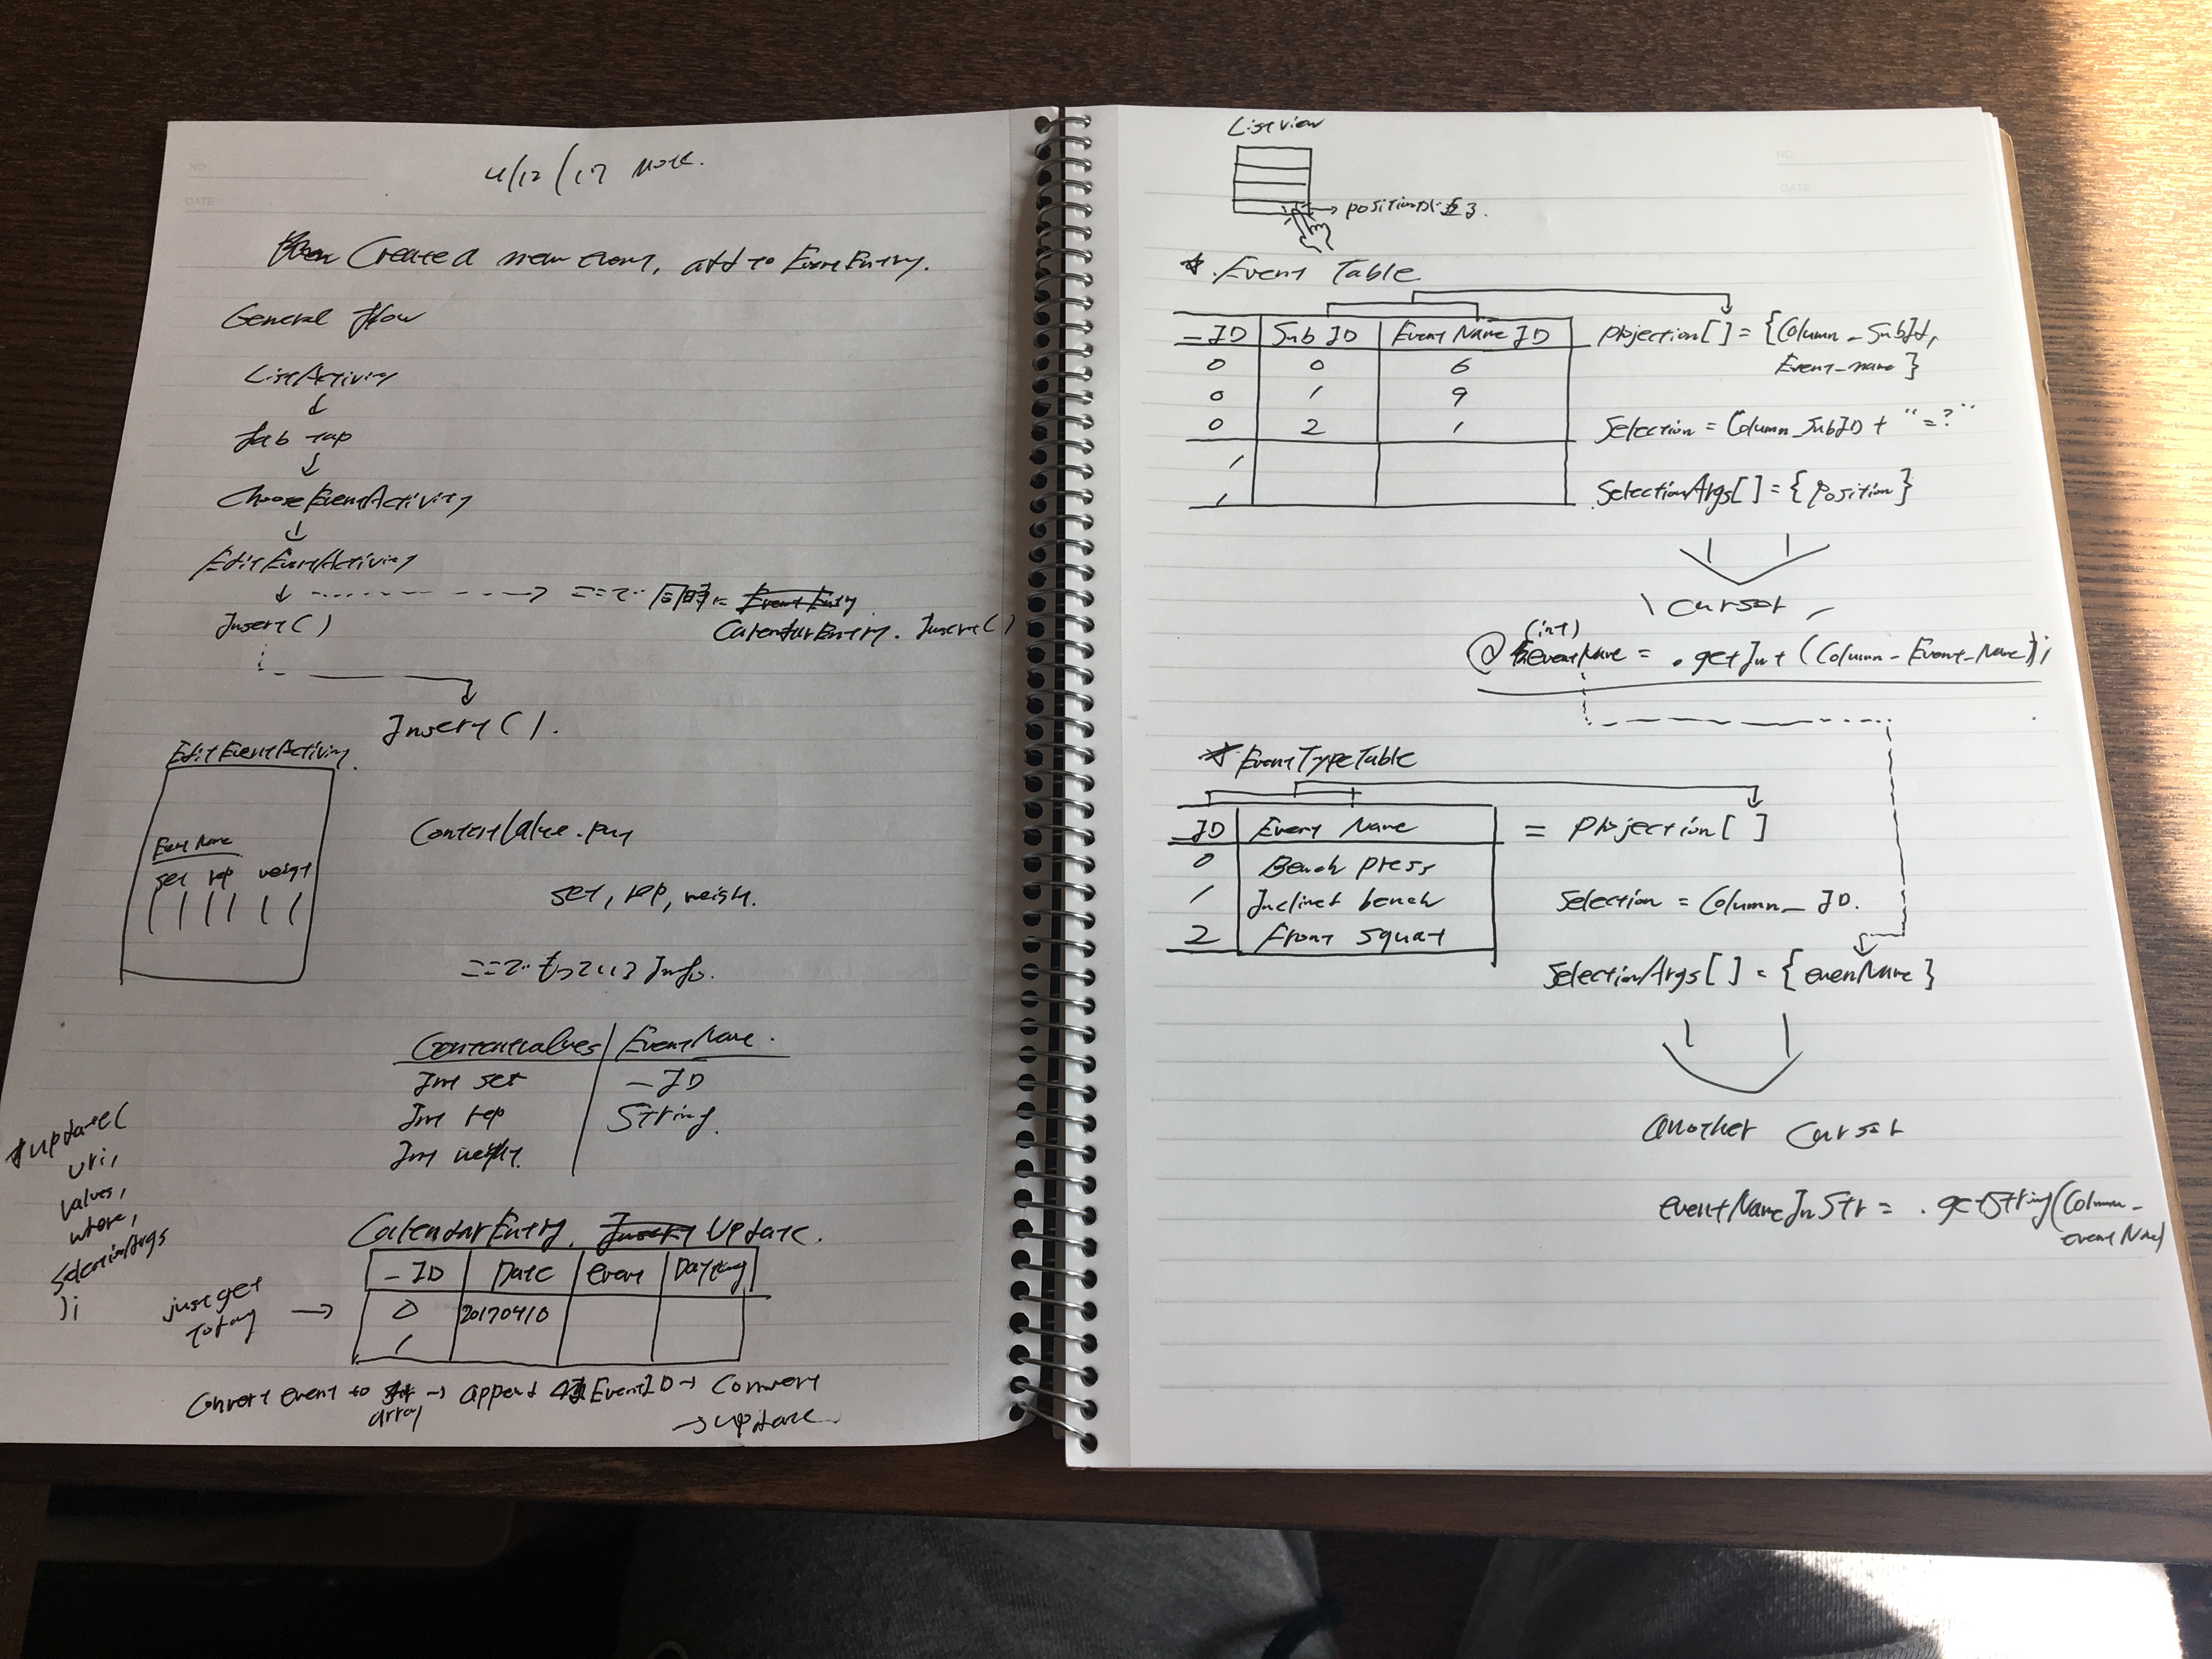 NO.
DATE
4/12/17 Note.
Created a new event, add to EventEntry.
General flow
ListActivity
↓
fab tap
↓
ChooseEventActivity
↓
EditEventActivity
↓ ------→ ここで 同時に EventEntry
Insert() CalendarEntry. Insert()
Insert().
EditEventActivity
Event Name
set rep weight
ContentValue.put
set, rep, weight.
ここでもっている Info.
ContentValues EventName.
Int set _ID
Int rep String
Int weight
*update(
uri,
values,
where,
selectionArgs
);
CalendarEntry. Insert Update.
_ID Date event
just get today → 0 20170410
1
Convert event to array → append EventID → Convert
→ update
NO.
DATE
ListView
→ positionが
*Event Table
_ID Sub ID Event Name ID
0 0 6
0 1 9
0 2 1
1
1
Projection[] = {Column_SubId,
Event_name}
Selection = Column_SubID + "=?"
SelectionArgs[] = {Position}
Cursor
(int)
eventName = .getInt (Column_Event_Name);
*EventTypeTable
_ID Event Name
0 Bench press
1 Inclinet bench
2 Front squat
= Projection[ ]
Selection = Column_ID.
SelectionArgs[] = {evenName}
another cursor
eventNameInStr = .getString(Column_
eventName)